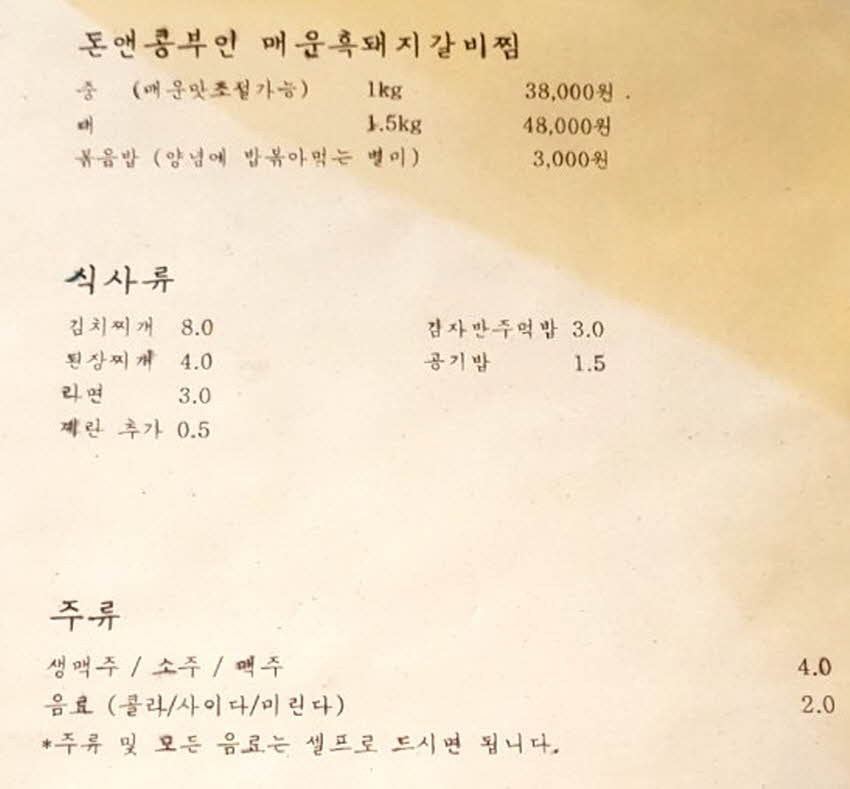 돈앤콩부인 매운흑돼지갈비찜
중 (매운맛조절가능) 1kg 38,000원
대 1.5kg 48,000원
볶음밥 (양념에 밥볶아먹는 별미) 3,000원
식사류
김치찌개 8.0 감자만주먹밥 3.0
된장찌개 4.0 공기밥 1.5
라면 3.0
계란 추가 0.5
주류
생맥주 / 소주 / 맥주 4.0
음료 (콜라/사이다/미린다) 2.0
*주류 및 모든 음료는 셀프로 드시면 됩니다.